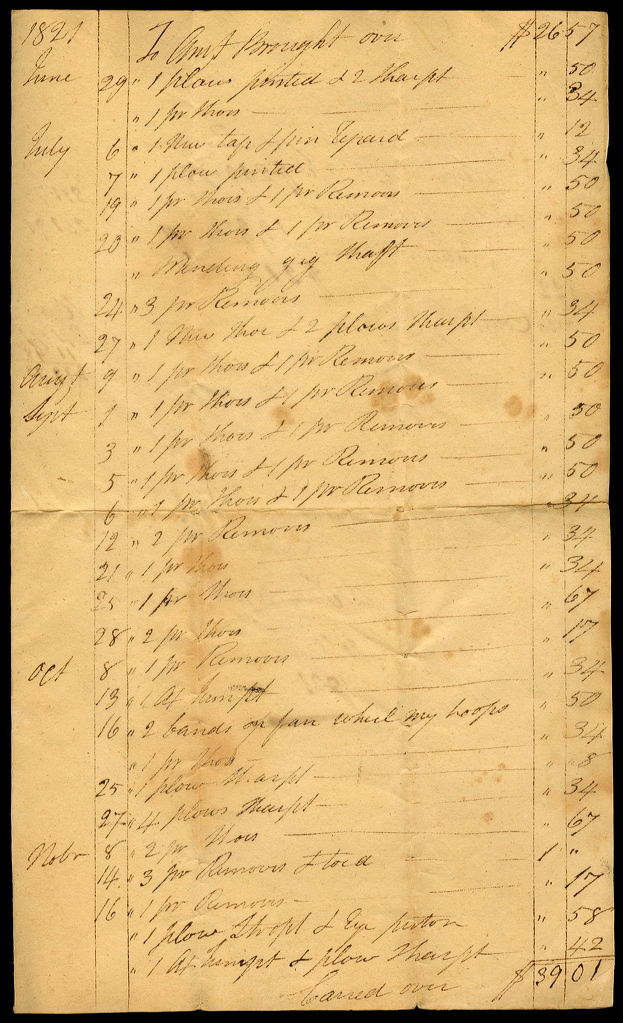 1821 To Amt Brought over $ 26 57
June 29 " 1 plow pinted & 2 Sharpt " 50
" 1 pr Shois " 34
July 6 " 1 New tap & pin Repaird " 12
7 " 1 plow pinted " 34
19 " 1 pr Shois & 1 pr Removis " 50
20 " 1 pr Shois & 1 pr Removis " 50
" Mending gig Shaft " 50
24 " 3 pr Removis " 50
27 " 1 New Shoe & 2 plows Sharpt " 34
Augt 9 " 1 pr Shois & 1 pr Removis " 50
Sept 1 " 1 pr Shois & 1 pr Removis " 50
3 " 1 pr Shois & 1 pr Removis " 50
5 " 1 pr Shois & 1 pr Removis " 50
6 " 1 pr Shois & 1 pr Removis " 50
12 " 2 pr Removis " 34
21 " 1 pr Shois " 34
25 " 1 pr Shois " 34
28 " 2 pr Shois " 67
Oct 8 " 1 pr Removis " 17
13 " 1 Ax Jumpt " 34
16 " 2 bands on fan wheel my hoops " 50
" 1 pr Shois " 34
25 " 1 plow Sharpt " 8
27 " 4 plows Sharpt " 34
Nobr 8 " 2 pr Shois " 67
14 " 3 pr Removis & toed 1 "
16 " 1 pr Removis " 17
" 1 plow & Eye " 58
" 1 Ax Jumpt & plow Sharpt " 42
Carred over $ 39 01